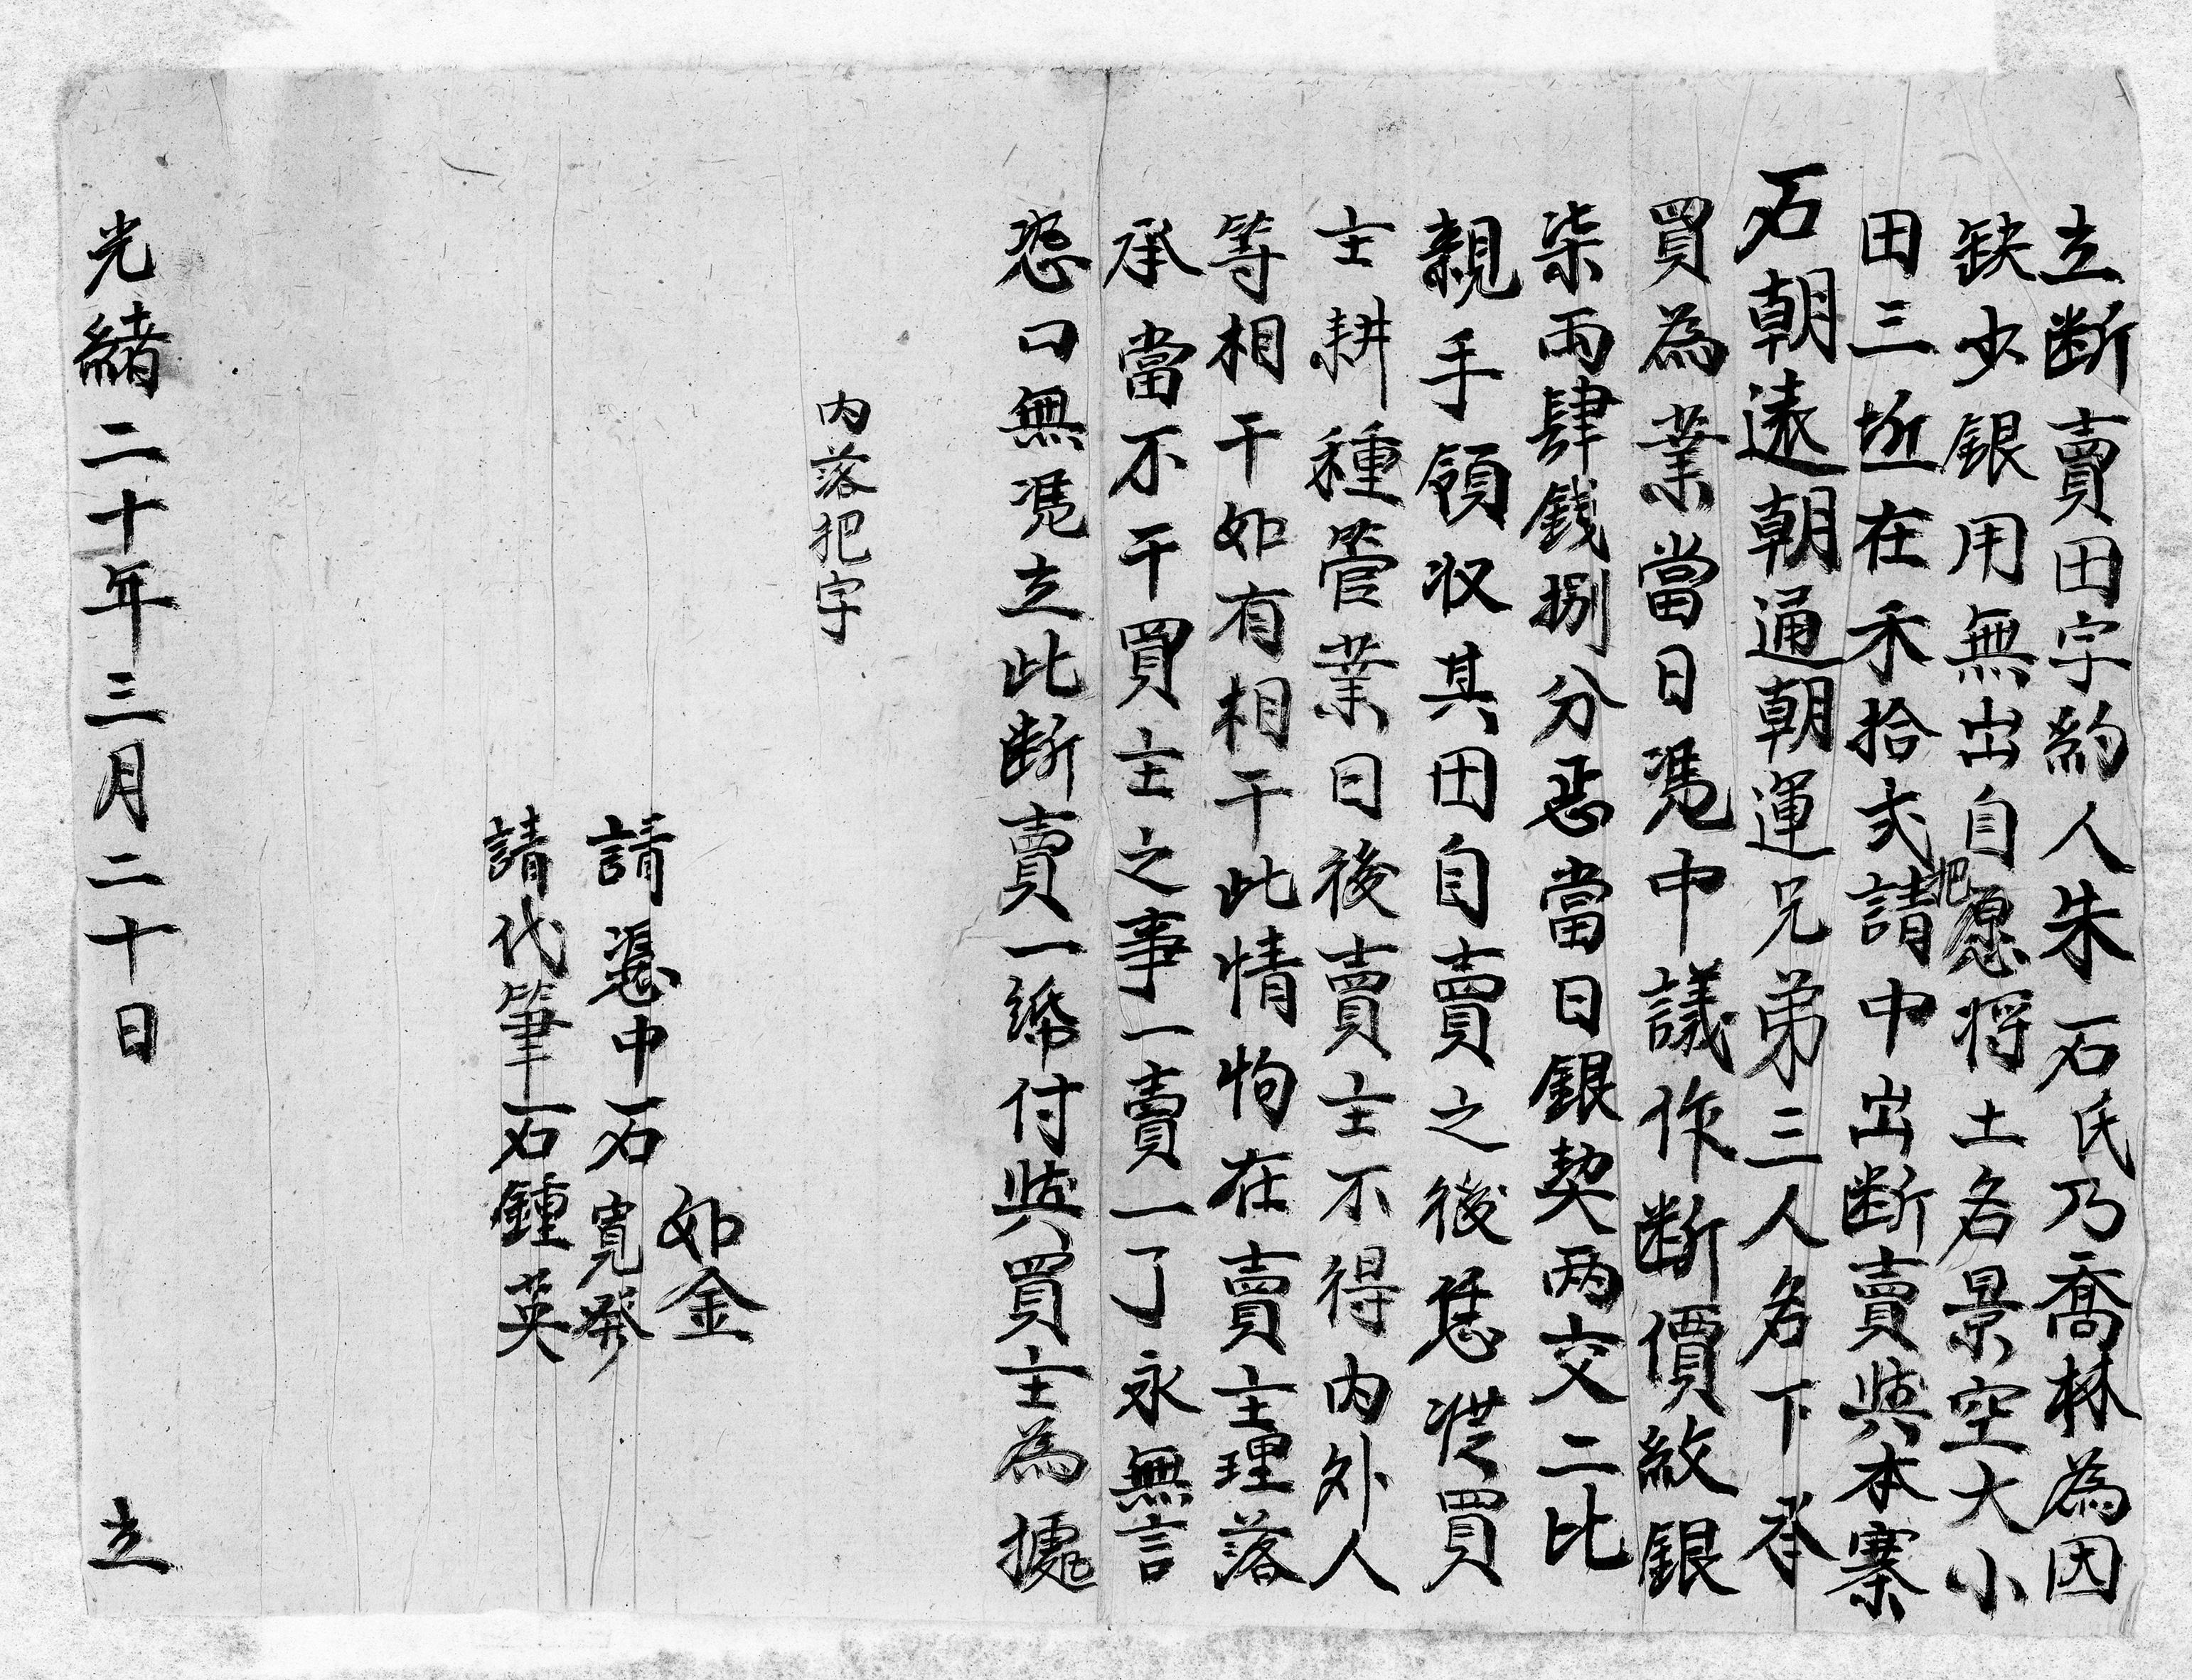 立断賣田字約人朱石氏乃喬林為因
缺少銀用無出自愿将土名景空大小
田三坵在禾拾弍把請中出断賣與本寨
石朝遠朝通朝運兄弟三人名下承
買為業當日凴中議作断價紋銀
柒両肆錢捌分悉當日銀契两交二比
親手領收其田自賣之後恁從買
主耕種管業日後賣主不得内外人
等相干如有相干此情怐在賣主理落
承當不干買主之事一賣一了永無言
恐口無凴立此断賣一帋付與買主為攄
内落把字
如金
請凴中石寬發
請代筆石鍾英
光緒二十年三月二十日 立